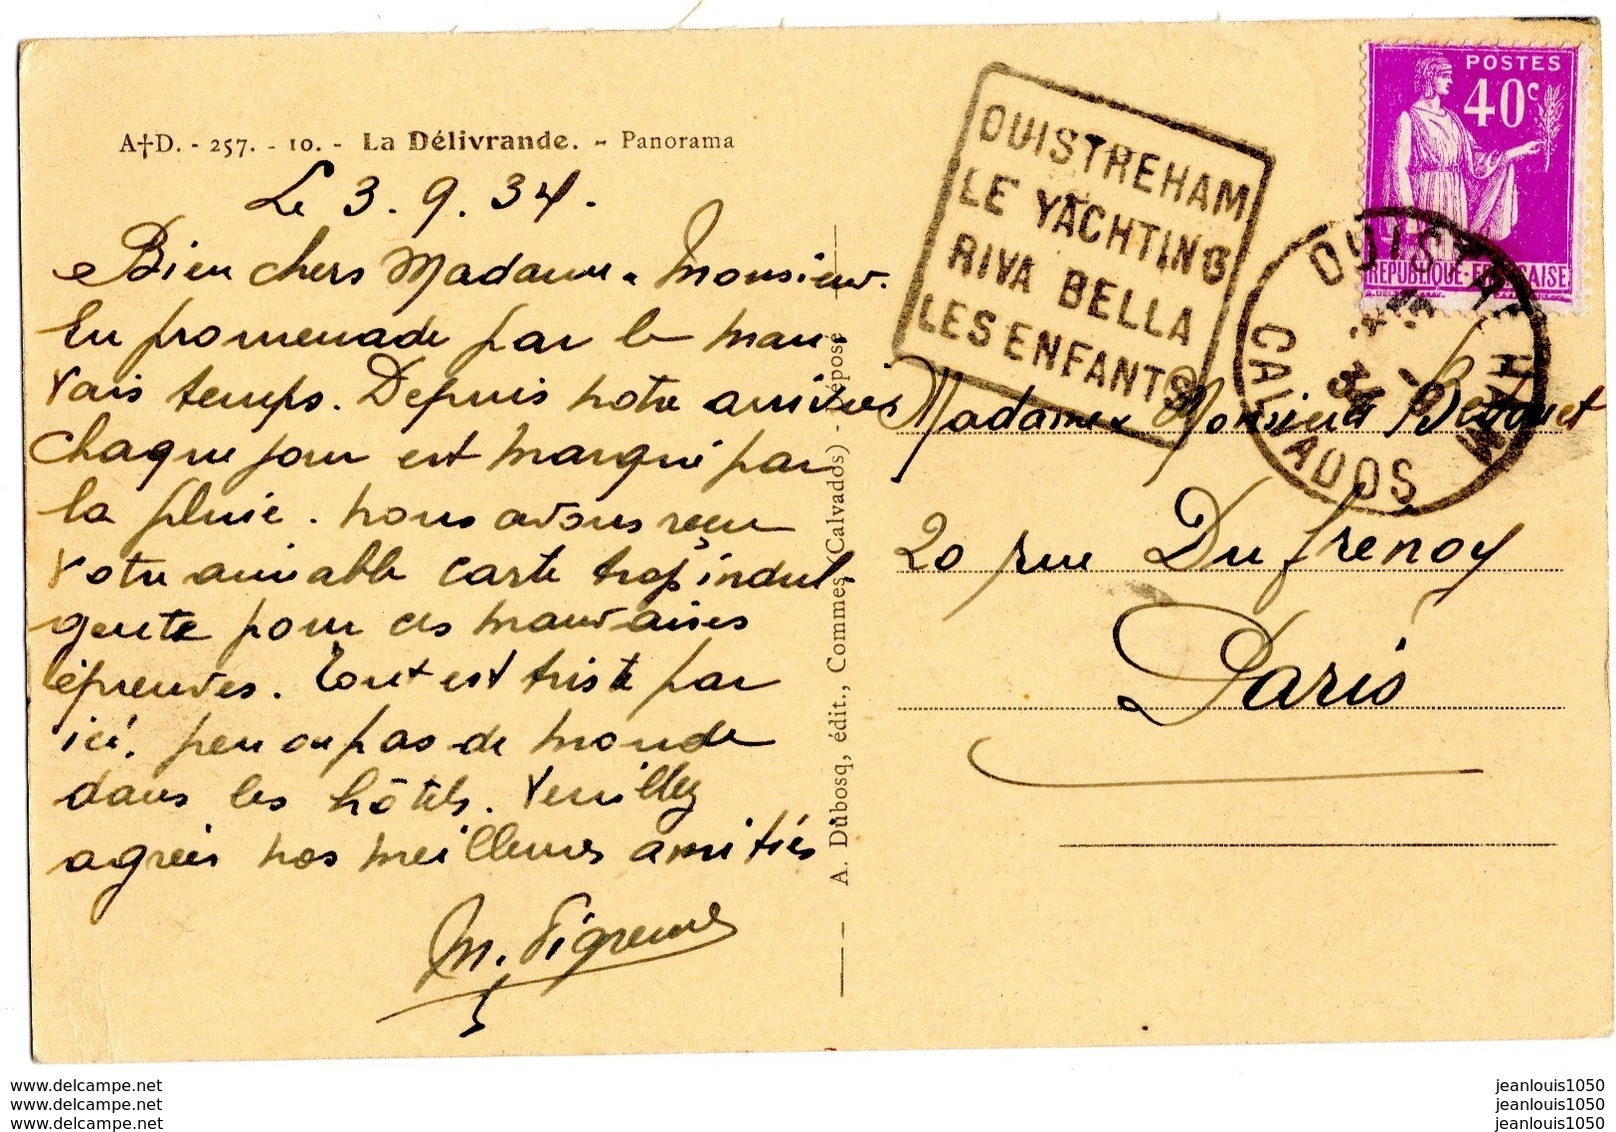 A†D. - 257. - 10. - La Délivrande. - Panorama
Le 3.9.34.
Bien chers Madame & Monsieur.
En promenade par le mau-
vais temps. Depuis notre arrivée
chaque jour est marqué par
la pluie. nous avons reçu
votre aimable carte trop indul-
gente pour ces mauvaises
épreuves. Tout est triste par
ici. peu ou pas de monde
dans les hôtels. Veuillez
agréer nos meilleures amitiés
A. Dubosq, édit., Commes (Calvados) - Déposé
OUISTREHAM
LE YACHTING
RIVA BELLA
LES ENFANTS
POSTES
40c
REPUBLIQUE-FRANÇAISE
OUISTREHAM
CALVADOS
Madame & Monsieur
20 rue Dufrenoy
Paris
www.delcampe.net
www.delcampe.net
www.delcampe.net
jeanlouis1050
jeanlouis1050
jeanlouis1050